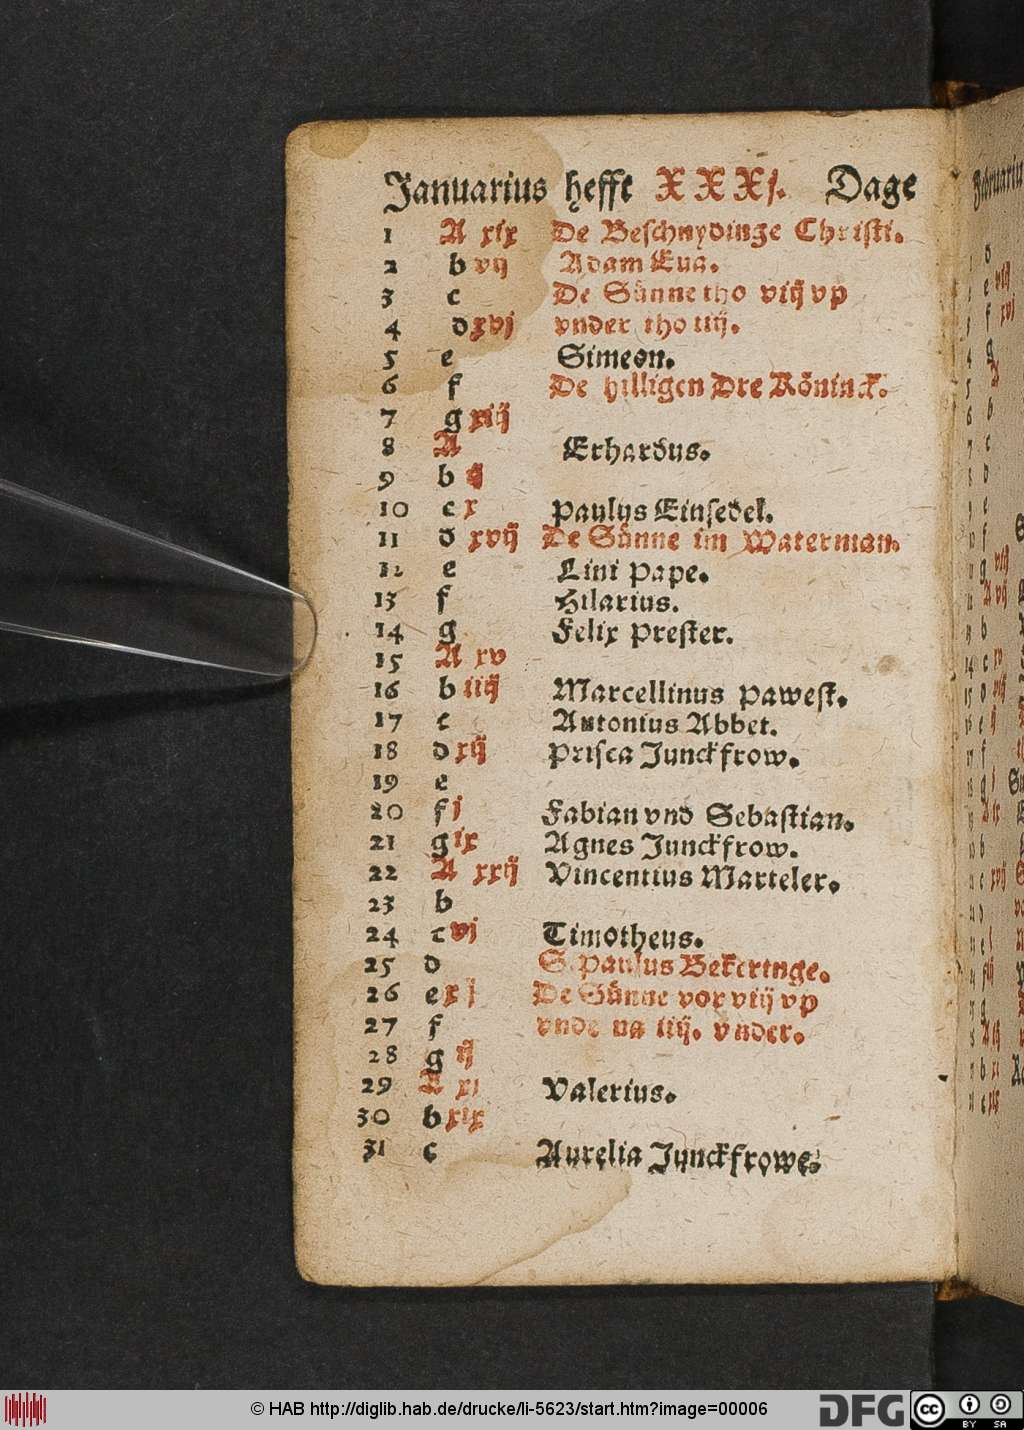 Januarius hefft XXXj. Dage
1 A xix De Beschnydinge Christi.
2 b vij Adam Eua.
3 c De Sünne tho viij vp
4 d xvj vnder tho iiij.
5 e Simeon.
6 f De hilligen Dre Köninck.
7 g xiij
8 A Erhardus.
9 b ij
10 c x Paulus Einsedel.
11 d xvij De Sünne im Waterman.
12 e Lini Pape.
13 f Hilarius.
14 g Felix Prester.
15 A xv
16 b iiij Marcellinus Pawest.
17 c Antonius Abbet.
18 d xij Prisca Junckfrow.
19 e
20 f j Fabian vnd Sebastian.
21 g ix Agnes Junckfrow.
22 A xxij Vincentius Marteler.
23 b
24 c vj Timotheus.
25 d S. Paulus Bekeringe.
26 e xj De Sünne vor viij vp
27 f vnde na iiij. vnder.
28 g ij
29 A xi Valerius.
30 b xix
31 c Aurelia Junckfrowe.
© HAB http://diglib.hab.de/drucke/li-5623/start.htm?image=00006
DFG
cc BY SA